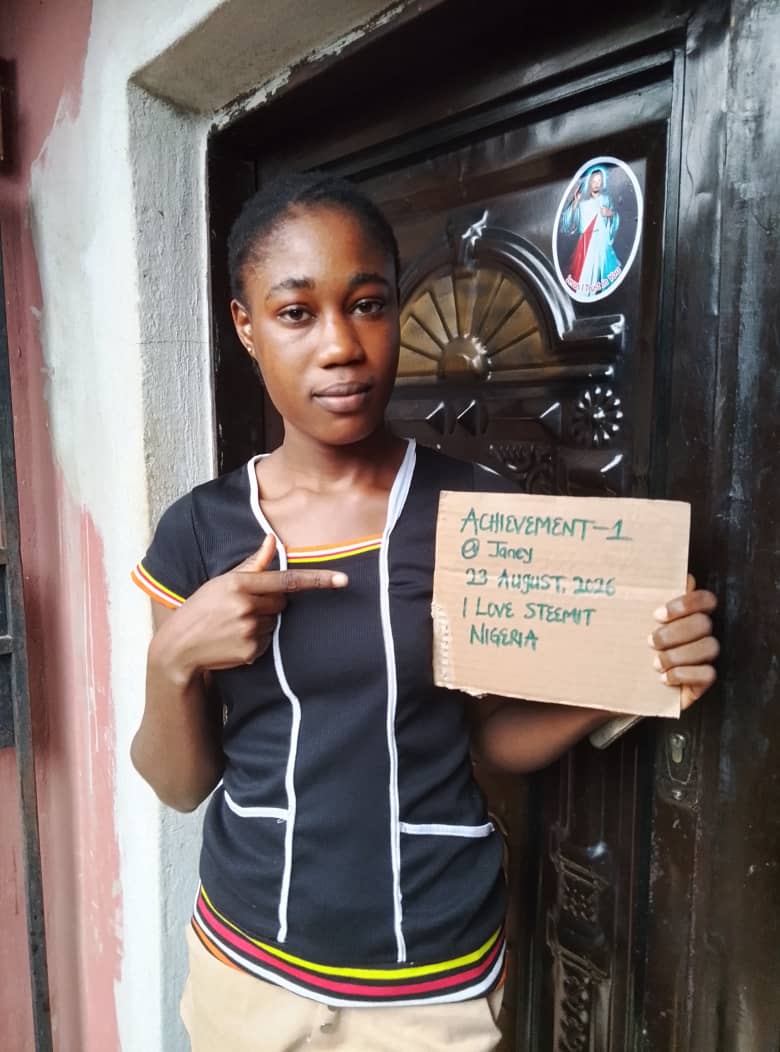 ACHIEVEMENT-1
@ Janey
23 AUGUST, 2026
I LOVE STEEMIT
NIGERIA
Jesus I Trust in You